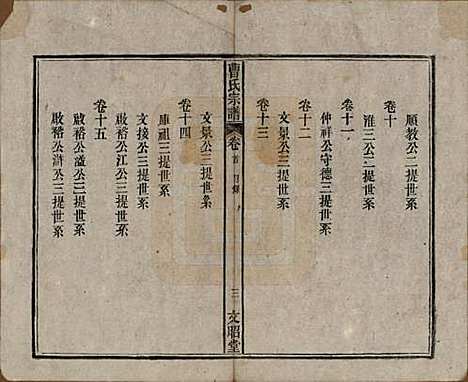 順教公二提世系
卷十
淮三公二提世系
卷十一
仲祥公守德三提世系
卷十二
文景公三提世系
卷十三
曹氏宗譜
卷首
目錄
三
文昭堂
文景公三提世系
卷十四
庫祖公三提世系
文接公三提世系
啟裕公江公三提世系
卷十五
啟裕公溢公三提世系
啟裕公滸公三提世系